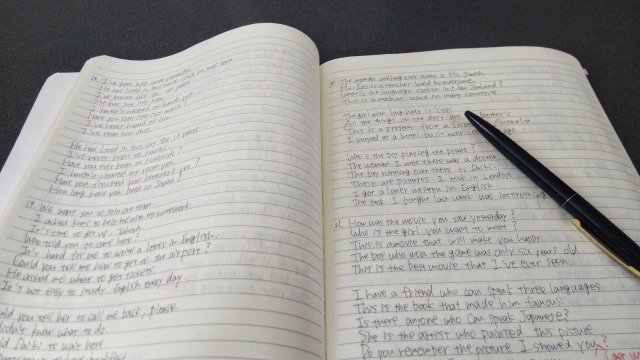 I've been busy since yesterday.
He has lived in this
She has
I haven't washed my hands yet.
Have you ever seen this movie?
I've never heard of him.
I've seen him once.
He has lived in this city for 10 years.
I've never been to
Have you ever been to
I haven't cleaned my room yet.
Have you finished your homework yet?
How long have you been in Japan?
19. We want you to join our team.
I asked Kumi to help me with my homework.
It's time to get up, Johnny.
Who told you to come here?
It's hard for me to write a letter in English.
Could you tell me how to get to the airport?
He asked me where to get tickets.
It's not easy to study English every day.
ould you tell her to call me back, please.
didn't know what to do
ld Daiki to wait here
20. The woman walking over there is Ms. Smith.
Mr. Ito is a teacher loved by everyone.
What's the language spoken in New Zealand?
This is a machine used in many countries.
The girl with long hair is Yuki.
All the things on the desk are brother's
This is a present from a Australia
I stayed at a hotel built over ago.
Who is the boy playing the piano?
The woman I met there was a doctor.
The boy running over there is Daiki.
These are pictures I took in London.
I got a letter written in English.
The book I bought last week was interesting.
21. How was the movie you saw yesterday?
Who is the girl you want to meet?
This is a movie that will make you happy.
The boy who won the game was only six years old.
This is the best movie that I've ever seen.
I have a friend who can speak three languages.
This is the book that made him famous.
Is there anyone who can speak Japanese?
She is the artist who painted this picture.
Do you remember the picture I showed you?